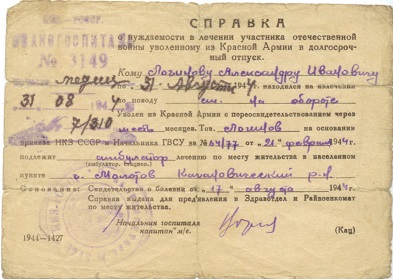 СПРАВКА
о нуждаемости в лечении участника отечественной
войны уволенному из Красной Армии в долгосрочный
отпуск.
ЭВАКОГОСПИТАЛЬ
№ 3149
Кому Логинову Александру Ивановичу
по 31 Август 194 находился на излечении
31 08 4 по поводу см. на обороте
7/310 Уволен из Красной Армии с переосвидетельствованием через
шесть месяцев. Тов. Логинов на основании
приказа НКЗ СССР и Начальника ГВСУ за № 4/77 от "21" февраля 1944г.
подлежит амбулатор лечению по месту жительства в населенном
пункте г. Молотов Кагановический р-н
Основание: Свидетельство о болезни от "17" августа 1944г.
Справка выдана для предъявления в Здравотдел и Райвоенкомат
по месту жительства.
Начальник госпиталя
капитан м/с.
(Кац)
1944—1427